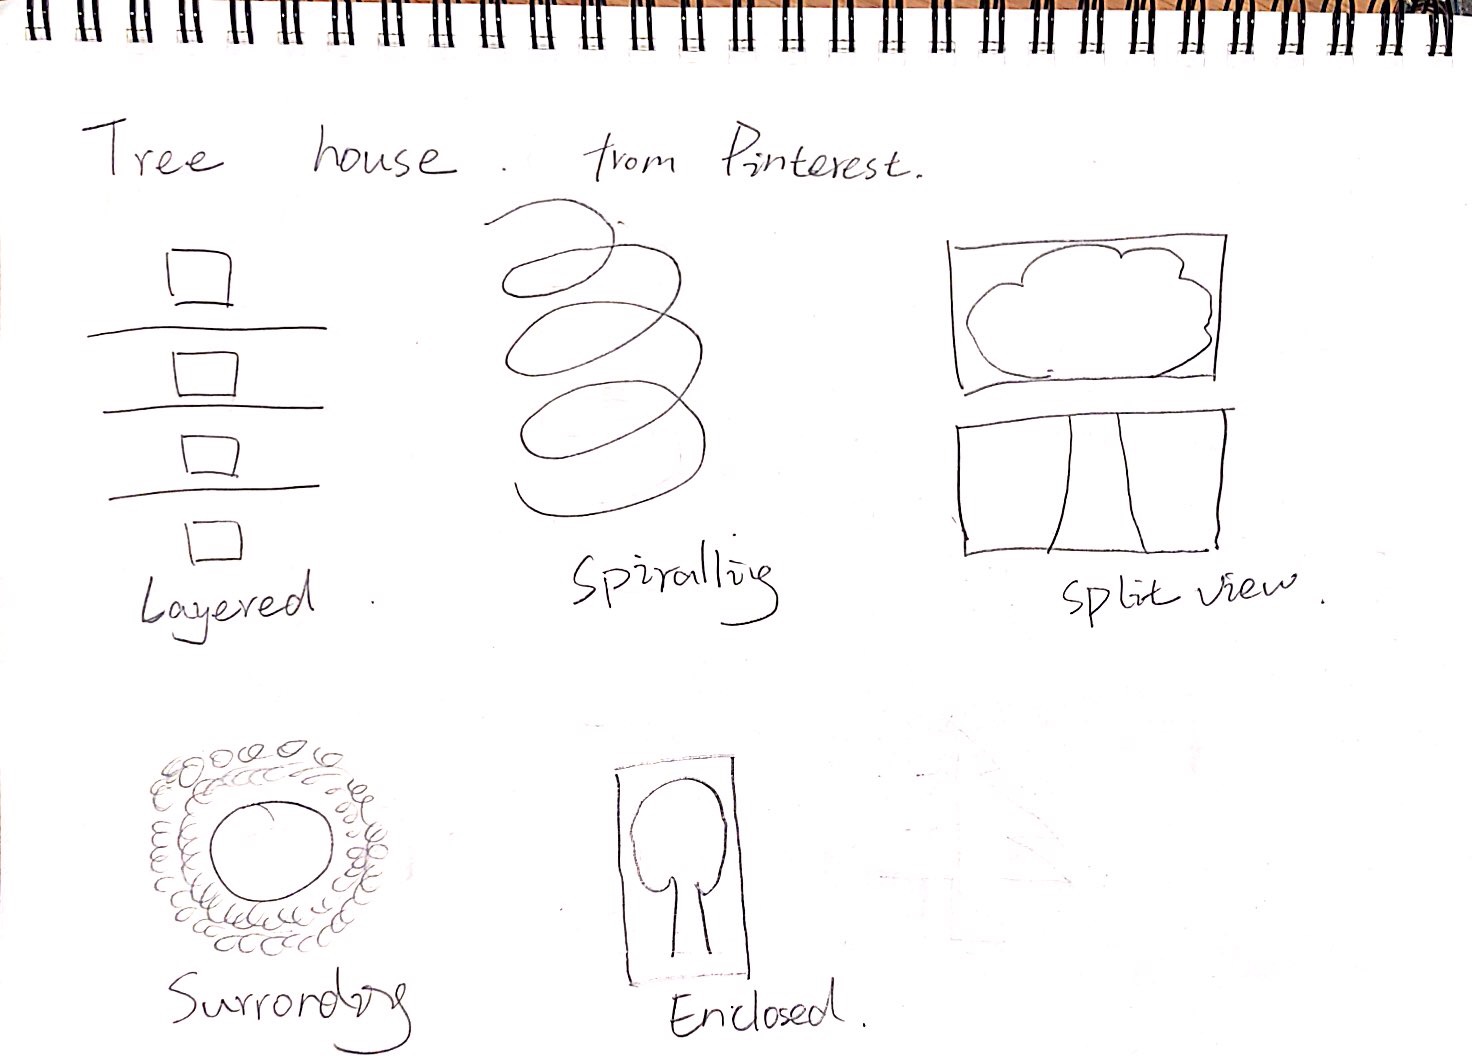 Tree house. from Pinterest.
Layered.
Spiralling
Split view.
Surronding
Enclosed.